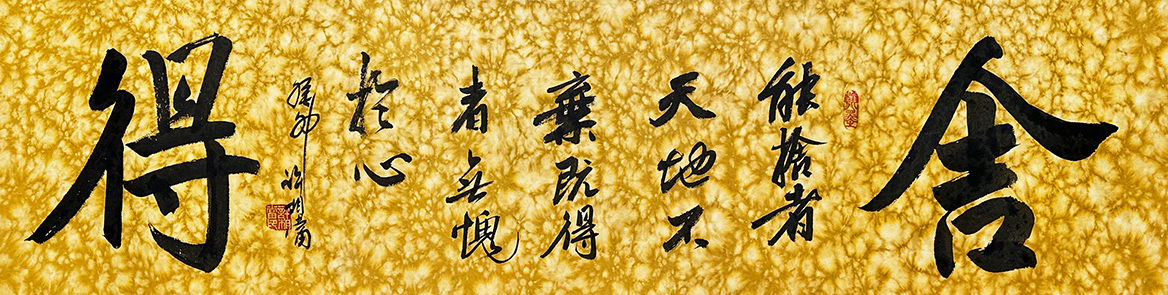 舍
能捨者
天地不
棄既得
者無愧
於心
癸卯
得